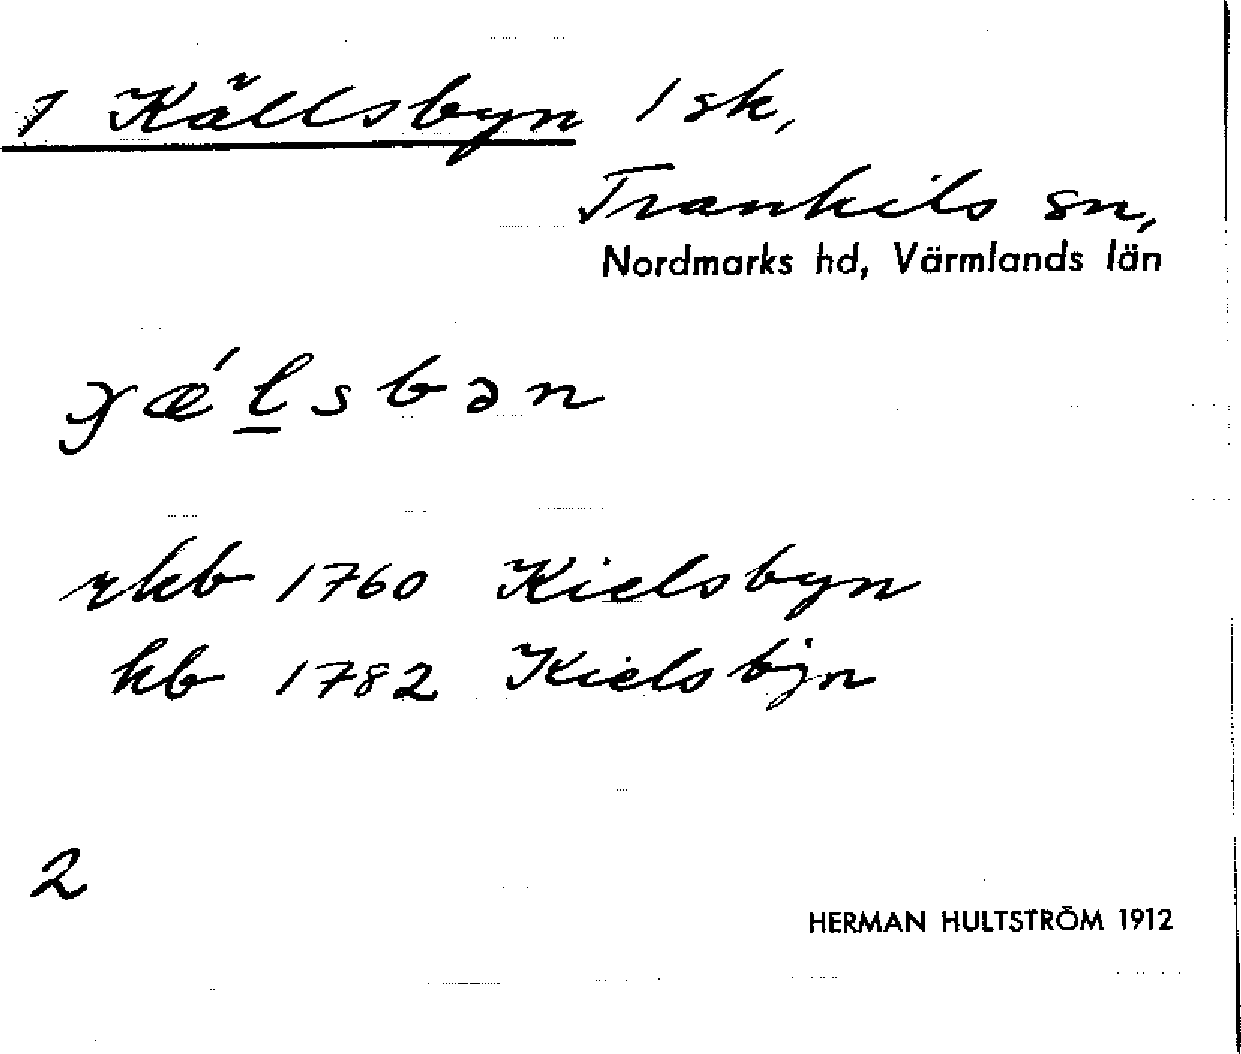 1 Källsbyn 1 sk,
Trankils sn,
Nordmarks hd, Värmlands län
ɣǽl̠sbən
rkb 1760 Kielsbyn
hb 1782 Kielsbÿn
2
HERMAN HULTSTRÖM 1912